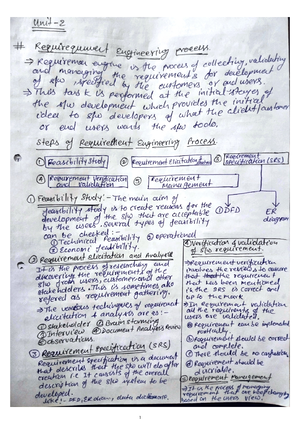 Unit-2
# Requirequment Engineering process
→ Requiremen engine is the process of collecting, validating
and managing the requirements for development
of s/w specified by the customers or end users.
→ Thus task is performed at the initial stages of
the s/w development which provides the initial
idea to s/w developers of what the client/customer
or end users wants the s/w to do.
Steps of Requirement Engineering Process:
① Feasibility Study
② Requirement Elicitation
③ Requirement Specification (SRC)
④ Requirement Verification and validation
⑤ Requirement Management
① DFD
ER diagram
① Feasibility Study:- The main aim of
feasibility study is to create reasons for the
development of the s/w that are acceptable
by the users. Several types of feasibility
can be checked:-
① Technical feasibility ② operational
③ Economic feasibility.
② Requirement elicitation and Analysis
It is the process of researching and
discovering the requirements of the
s/w from users, customers and other
stakeholders. This is sometimes also
refered as requirement gathering.
→ The various techniques of requirement
elicitation & analysis are as:-
① Stakeholder ② Brain storming
③ Interview ④ Document Analysis Review
⑤ observations.
③ Requirement Specification (SRS)
Requirement specification is a document
that describes what the s/w will do after
creation i.e. It consists of the overall
description of the s/w system to be
developed.
④ Verification & validation
of S/w requirement.
→ Requirement verification
involves the reviews to assure
that the requirement
that has been mentioned
in the SRS is correct and
up to the mark
⇒ In Requirement validation
all the requirements of the
users are validated.
① Requirement can be implemented
practically.
② Requirement should be correct
and complete.
③ There should be no confusion
④ Requirement should be
⑤ Requirement Management
→ It is the process of managing
requirement that are
based on the users view.
1